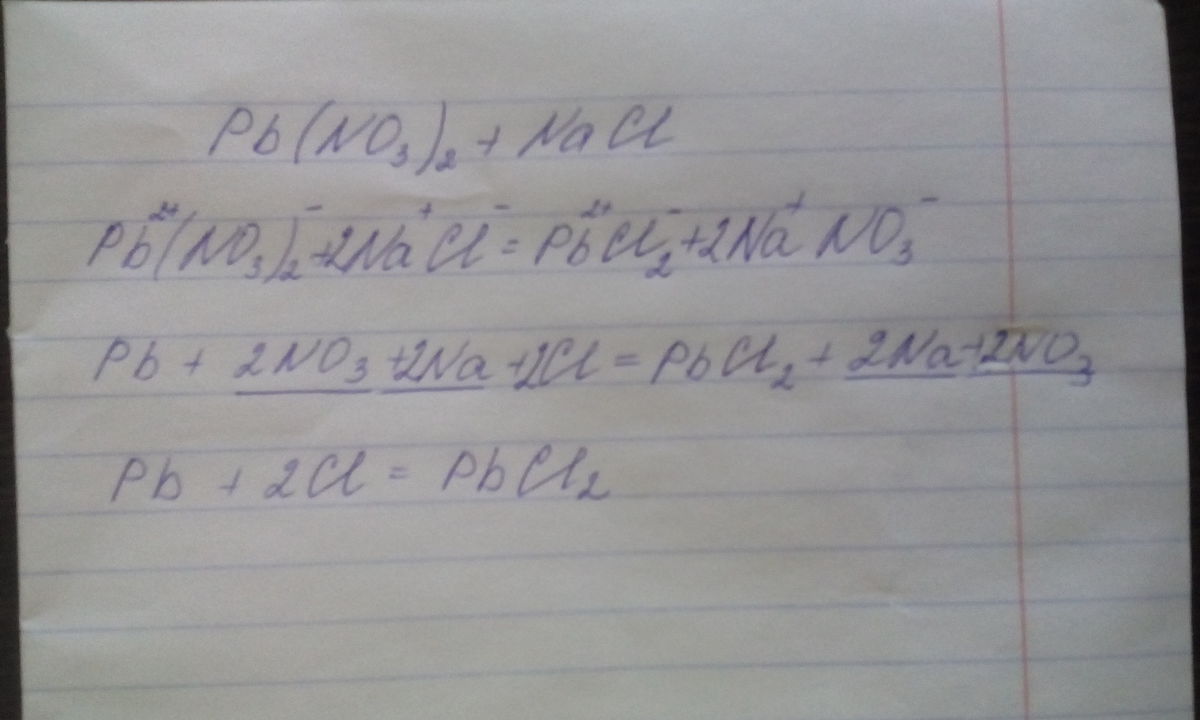 Pb(NO₃)₂ + NaCl
Pb²⁺(NO₃)₂⁻ + 2Na⁺Cl⁻ = Pb²⁺Cl₂⁻ + 2Na⁺NO₃⁻
Pb + 2NO₃ + 2Na + 2Cl = PbCl₂ + 2Na + 2NO₃
Pb + 2Cl = PbCl₂